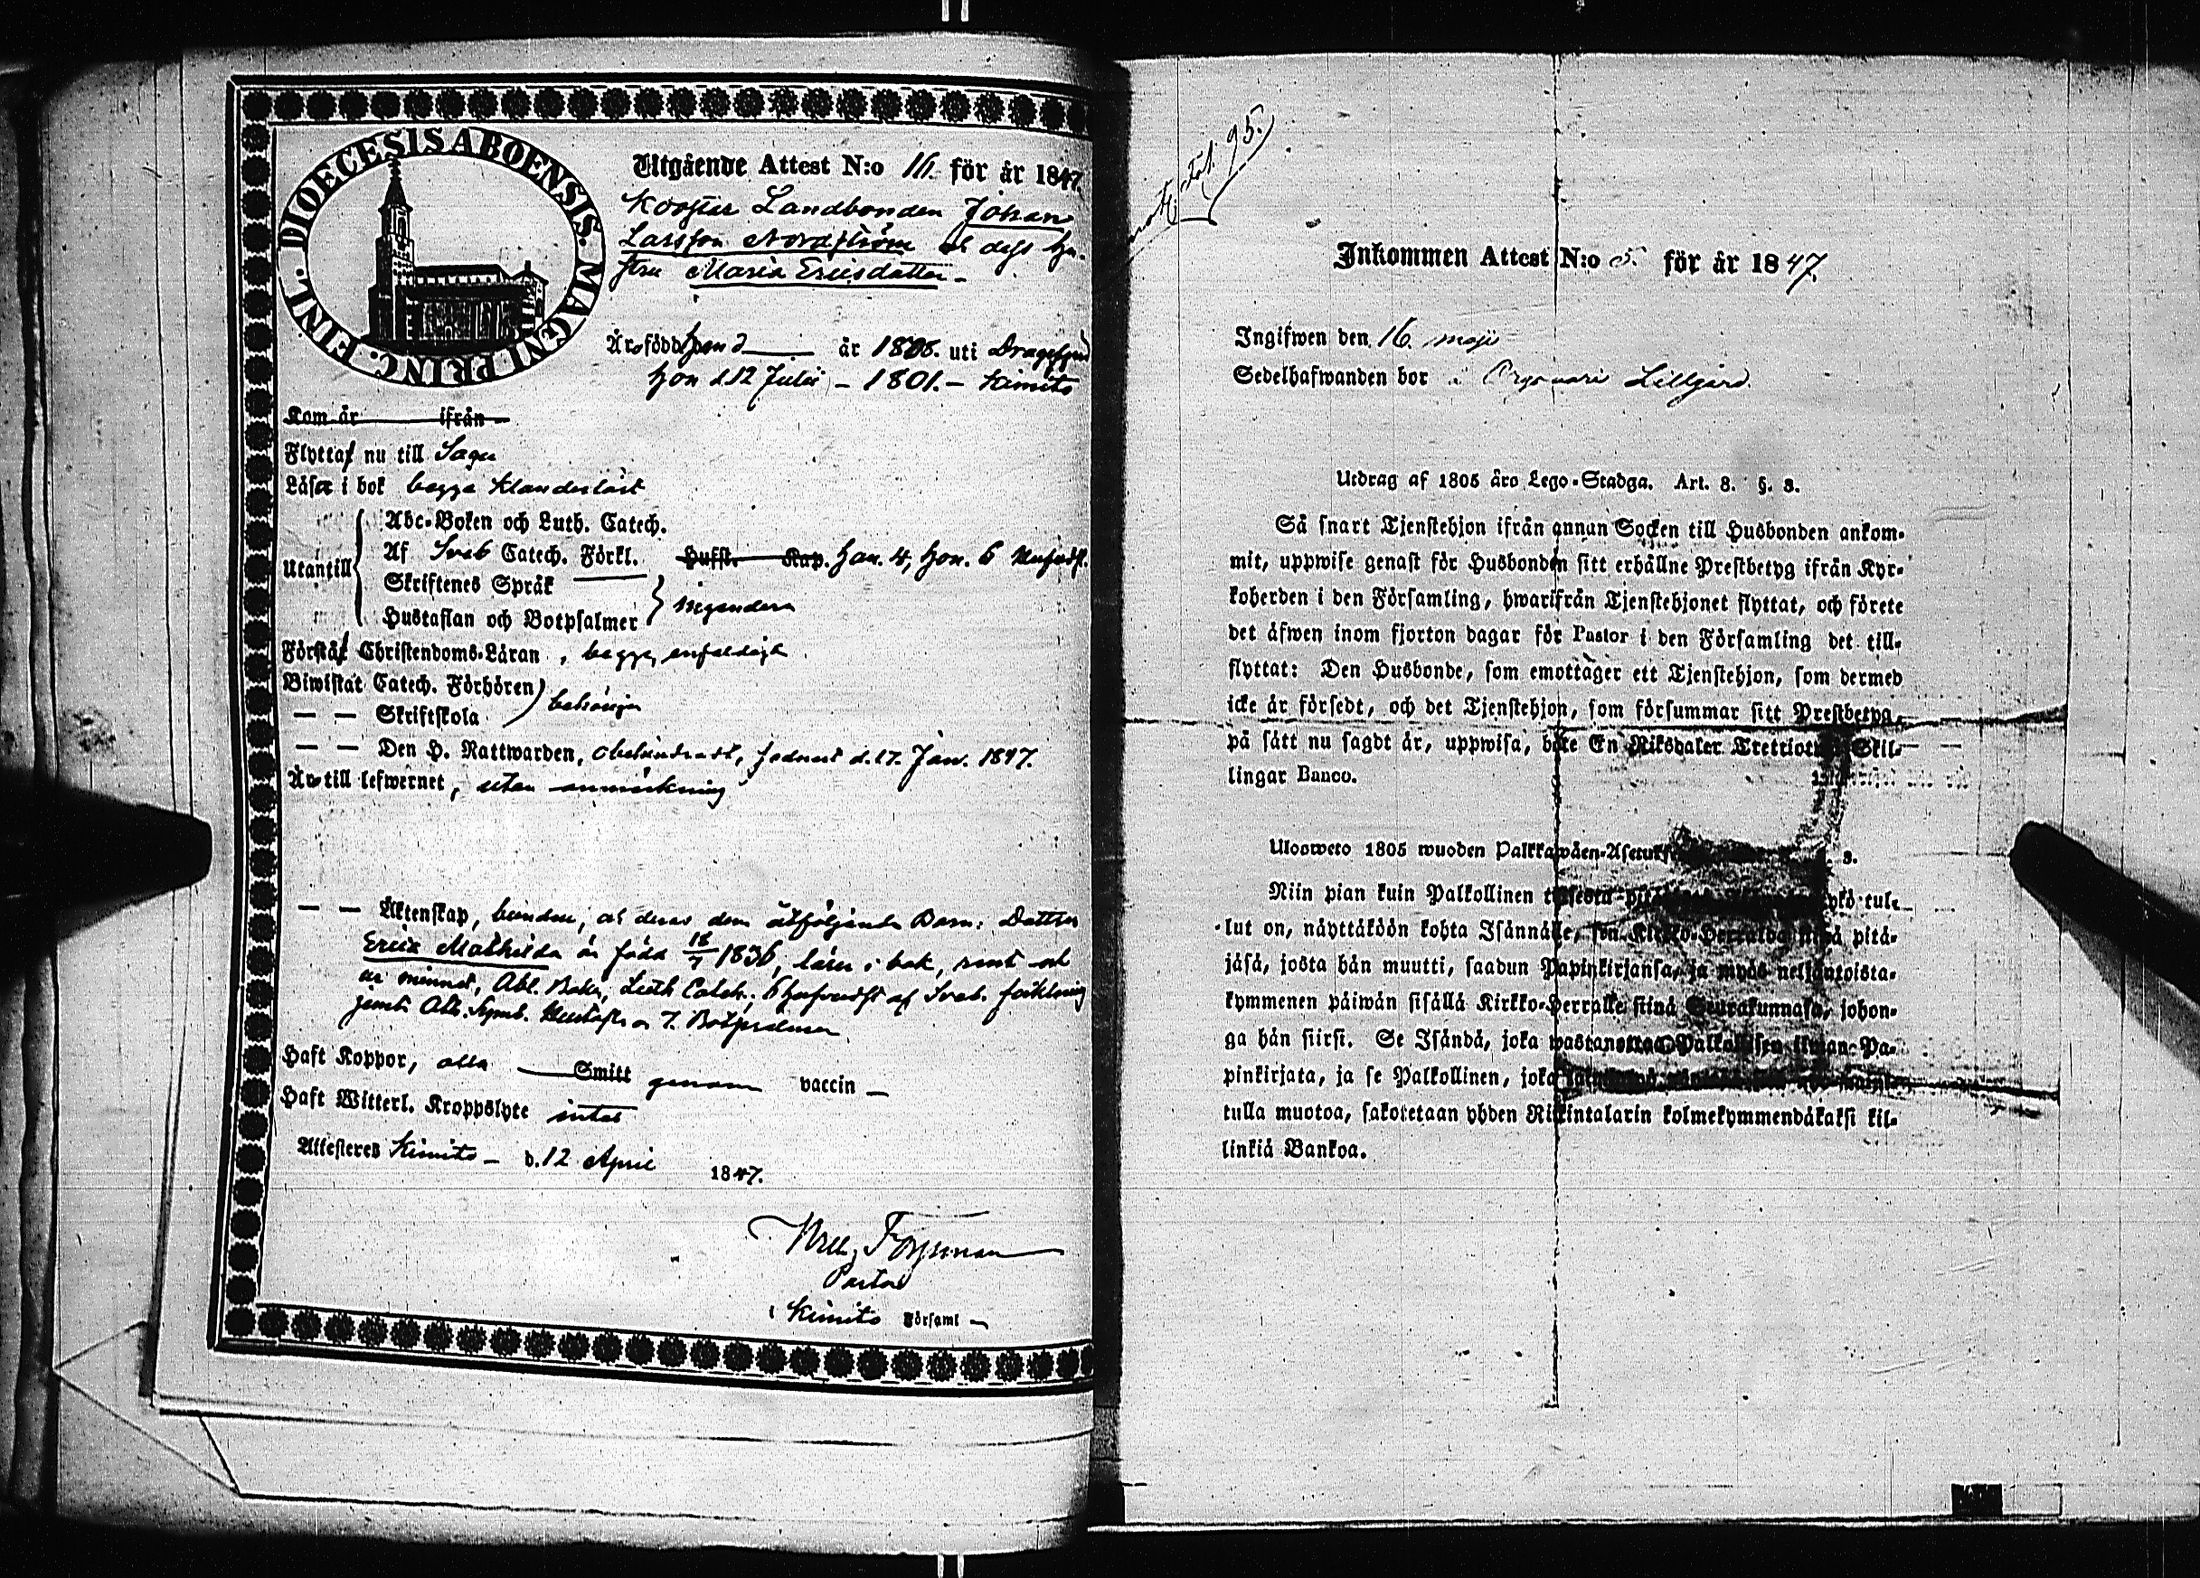 DIOECESIS ABOENSIS. MAGNI PRINC. FINL.
Utgående Attest N:o 16. för år 1847.
Landbonden Johan
Larsson Nordström och dess Hu-
stru Maria Ericsdotter
Äro födde han d — år 1808. uti Dragsfjerd
hon d 12 Julii – 1801. – Kimito
Kom år ifrån
Flyttaf nu till Sagu
Läser i bok begge klanderlöst
Utantill
Abc-Boken och Luth. Catech.
Af Sveb Catech. Förkl. Hufst. Kap. han 4, hon 6
Skriftenes Språk
Hustaflan och Botpsalmer
ingendera
Förstå Christendoms-Läran, begge, enfaldigt
Biwistat Catech. Förhören
— — Skriftskola
behörigen
— — Den H. Nattwarden, obehindradt, sednast d. 17. Jan. 1847.
Äro till lefwernet, utan anmärkning
— — Äktenskap, bundne, och deras dem åtföljande Barn: Dotter
Erica Mathilda är född 18/7 1836, läser i bok, samt
ur minnet, Abc. Boken, Luth Catech., 6 Hufvudst af Sveb. förklaring
jemte Ath. Symb. Hustafl. o 7. Botpsalmer
Haft Koppor, alla — Smitt genom vaccin —
Haft Witterl. Kroppslyte intet
Attesteres Kimito – d. 12 April 1847.
Pastor
i Kimito Församl
Fol. 95.
Inkommen Attest N:o 5. för år 1847.
Ingifwen den 16. maji
Sedelhafwanden bor i Lillgård.
Utdrag af 1805 åro Lego-Stadga. Art. 8. §. 3.
Så snart Tjenstehjon ifrån annan Socken till Husbonden ankom-
mit, uppwise genast för Husbonden sitt erhållne Prestbetyg ifrån Kyr-
koherden i den Församling, hwarifrån Tjenstehjonet flyttat, och förete
det äfwen inom fjorton dagar för Pastor i den Församling det till-
flyttat: Den Husbonde, som emottager ett Tjenstehjon, som dermed
icke är försedt, och det Tjenstehjon, som försummar sitt Prestbetyg,
på sätt nu sagdt är, uppwisa, böte En Riksdaler Trettiotwå Skil-
lingar Banco.
Ulosweto 1805 wuoden Palkkawäen-Asetuks 3.
Niin pian kuin Palkollinen toisesta tul-
lut on, näyttäköön kohta Isännälle, sen Kirkko-Herralda siinä pitä-
jäsä, josta hän muutti, saadun Papinkirjansa, ja myös neljäntoista-
kymmenen päiwän sisällä Kirkko-Herralle siinä Seurakunnasa, johon-
ga hän siirsi. Se Isändä, joka wastanottaa Palkollisen ilman Pa-
pinkirjata, ja se Palkollinen, joka
tulla muotoa, sakotetaan yhden Rikintalarin kolmekymmendäkaksi kil-
linkiä Bankoa.